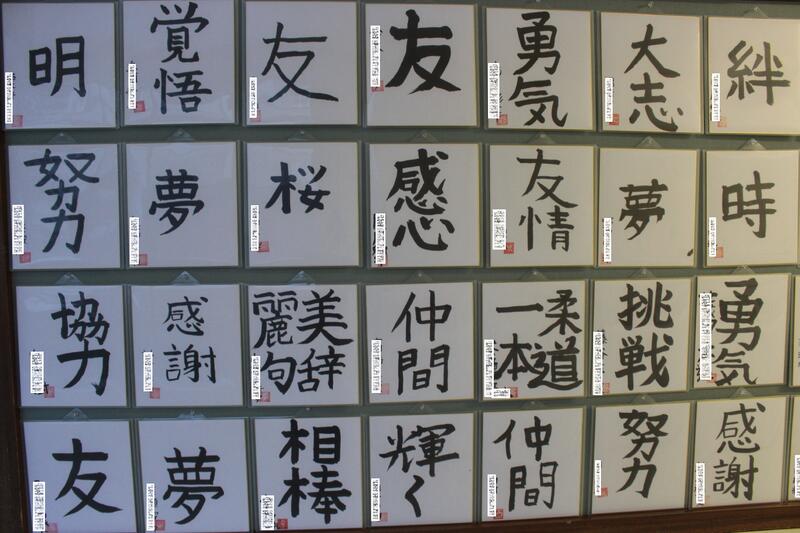 明
覚悟
友
友
勇気
大志
絆
努力
夢
桜
感
友情
夢
時
協力
感謝
美辞
麗句
仲間
柔道
一本
挑戦
勇気
友
夢
相棒
輝く
仲間
努力
感謝